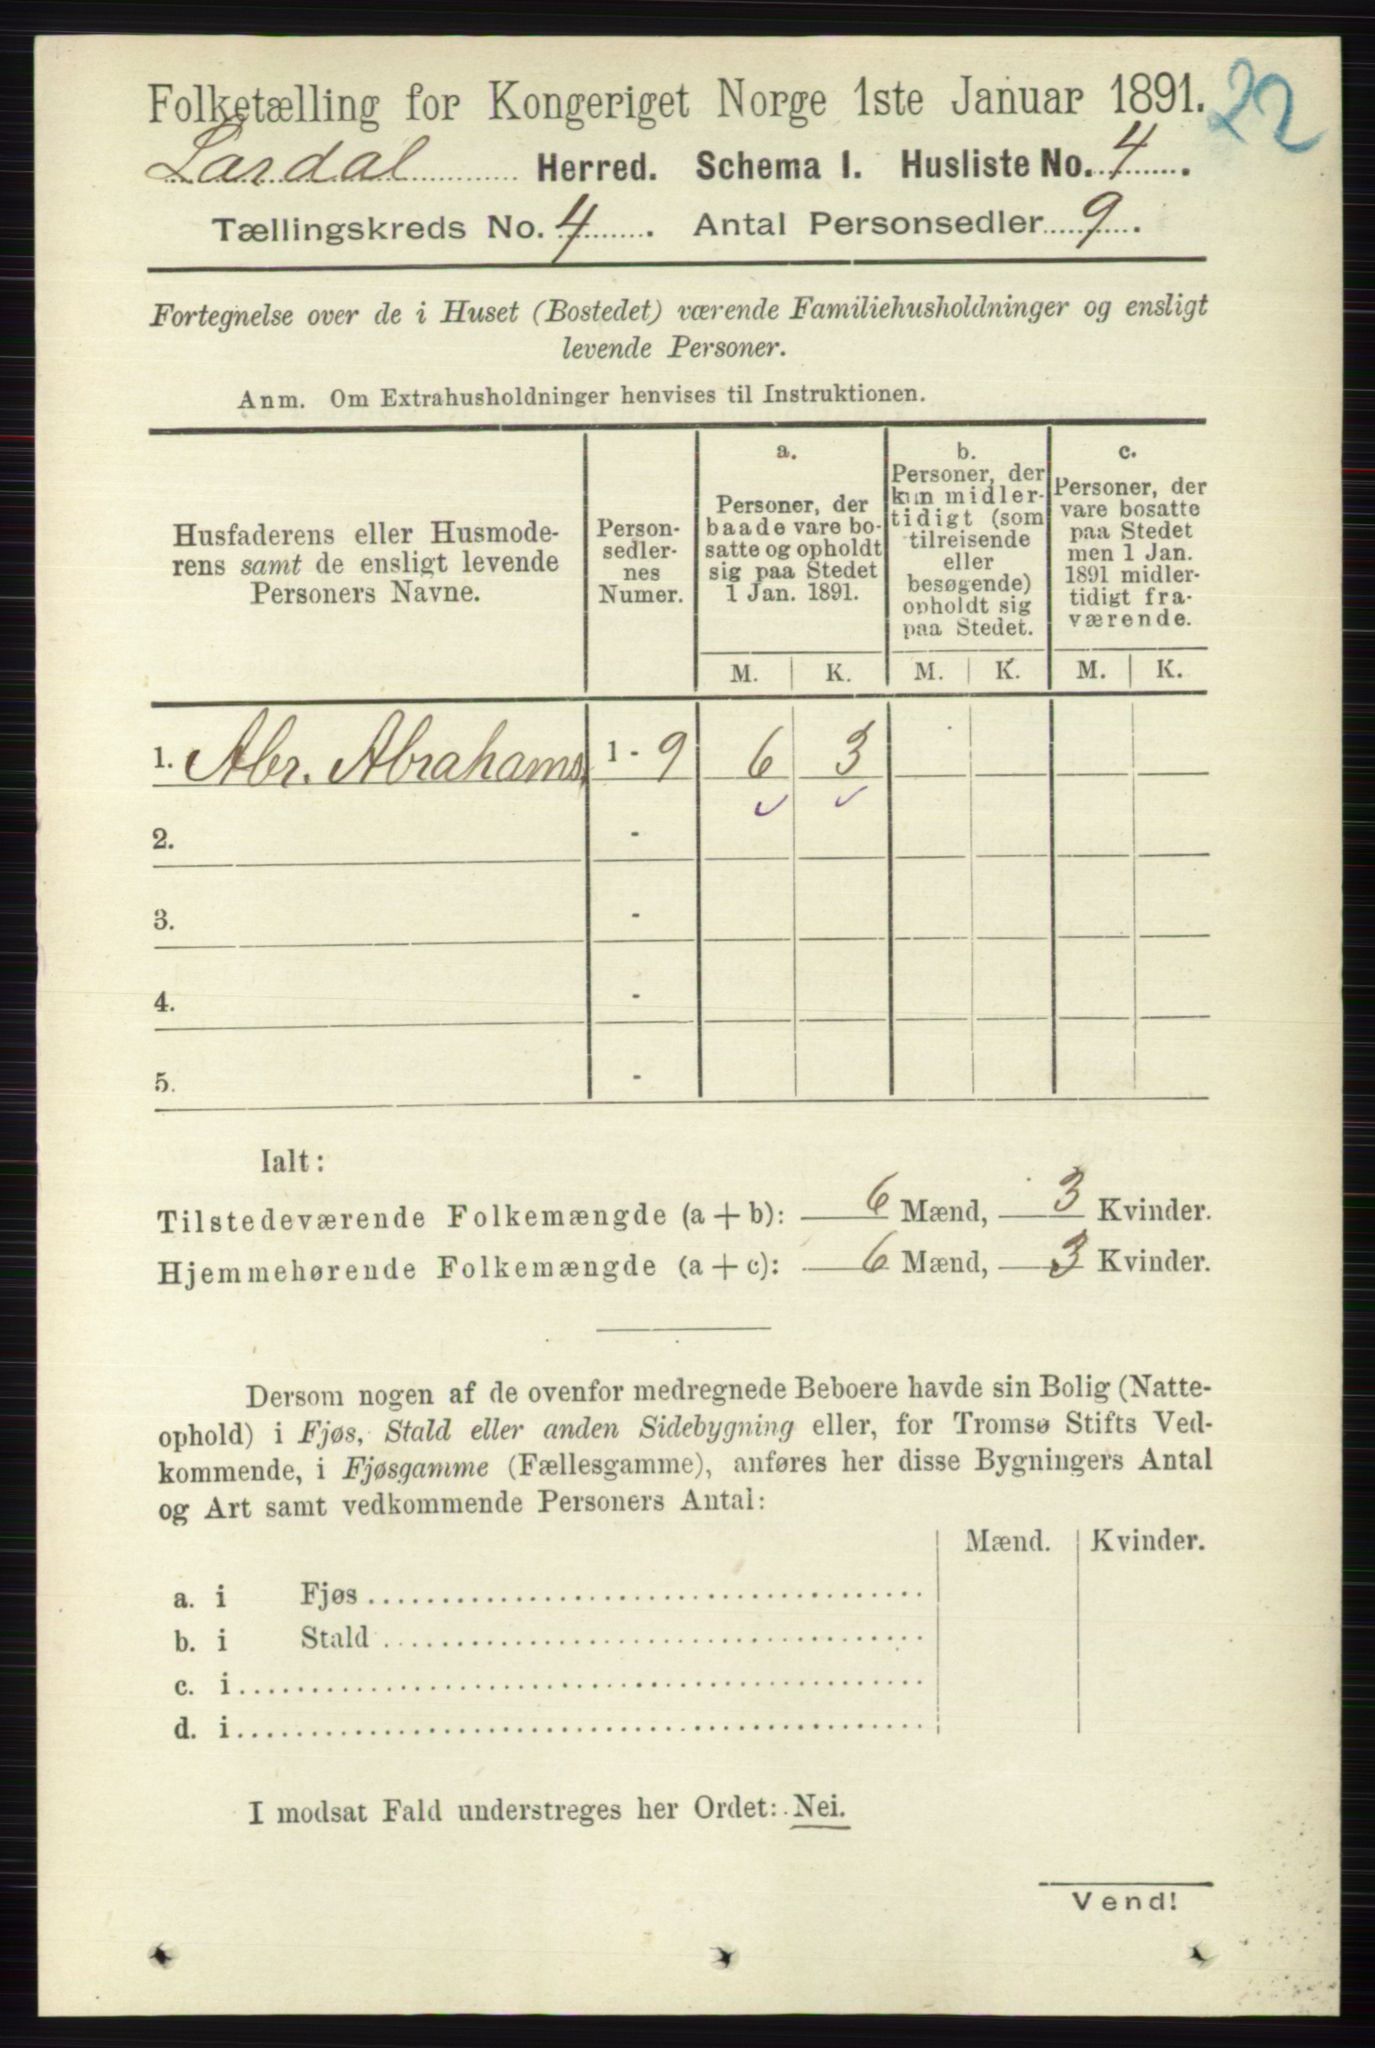 Folketælling for Kongeriget Norge 1ste Januar 1891. 22
Lardal Herred. Schema I. Husliste No. 4.
Tællingskreds No. 4. Antal Personsedler 9.
Fortegnelse over de i Huset (Bostedet) værende Familiehusholdninger og ensligt
levende Personer.
Anm. Om Extrahusholdninger henvises til Instruktionen.
Husfaderens eller Husmode-
rens samt de ensligt levende
Personers Navne.
Person-
sedler-
nes
Numer.
a.
Personer, der
baade vare bo-
satte og opholdt
sig paa Stedet
1 Jan. 1891.
b.
Personer, der
kun midler-
tidigt (som
tilreisende
eller
besøgende)
opholdt sig
paa Stedet.
c.
Personer, der
vare bosatte
paa Stedet
men 1 Jan.
1891 midler-
tidigt fra-
værende.
M. K. M. K. M. K.
1. Abr. Abrahams. 1 - 9 6 3
2. -
3. -
4. -
5. -
Ialt:
Tilstedeværende Folkemængde (a + b): 6 Mænd, 3 Kvinder.
Hjemmehørende Folkemængde (a + c): 6 Mænd, 3 Kvinder.
Dersom nogen af de ovenfor medregnede Beboere havde sin Bolig (Natte-
ophold) i Fjøs, Stald eller anden Sidebygning eller, for Tromsø Stifts Ved-
kommende, i Fjøsgamme (Fællesgamme), anføres her disse Bygningers Antal
og Art samt vedkommende Personers Antal:
Mænd. Kvinder.
a. i Fjøs
b. i Stald
c. i
d. i
I modsat Fald understreges her Ordet: Nei.
Vend!